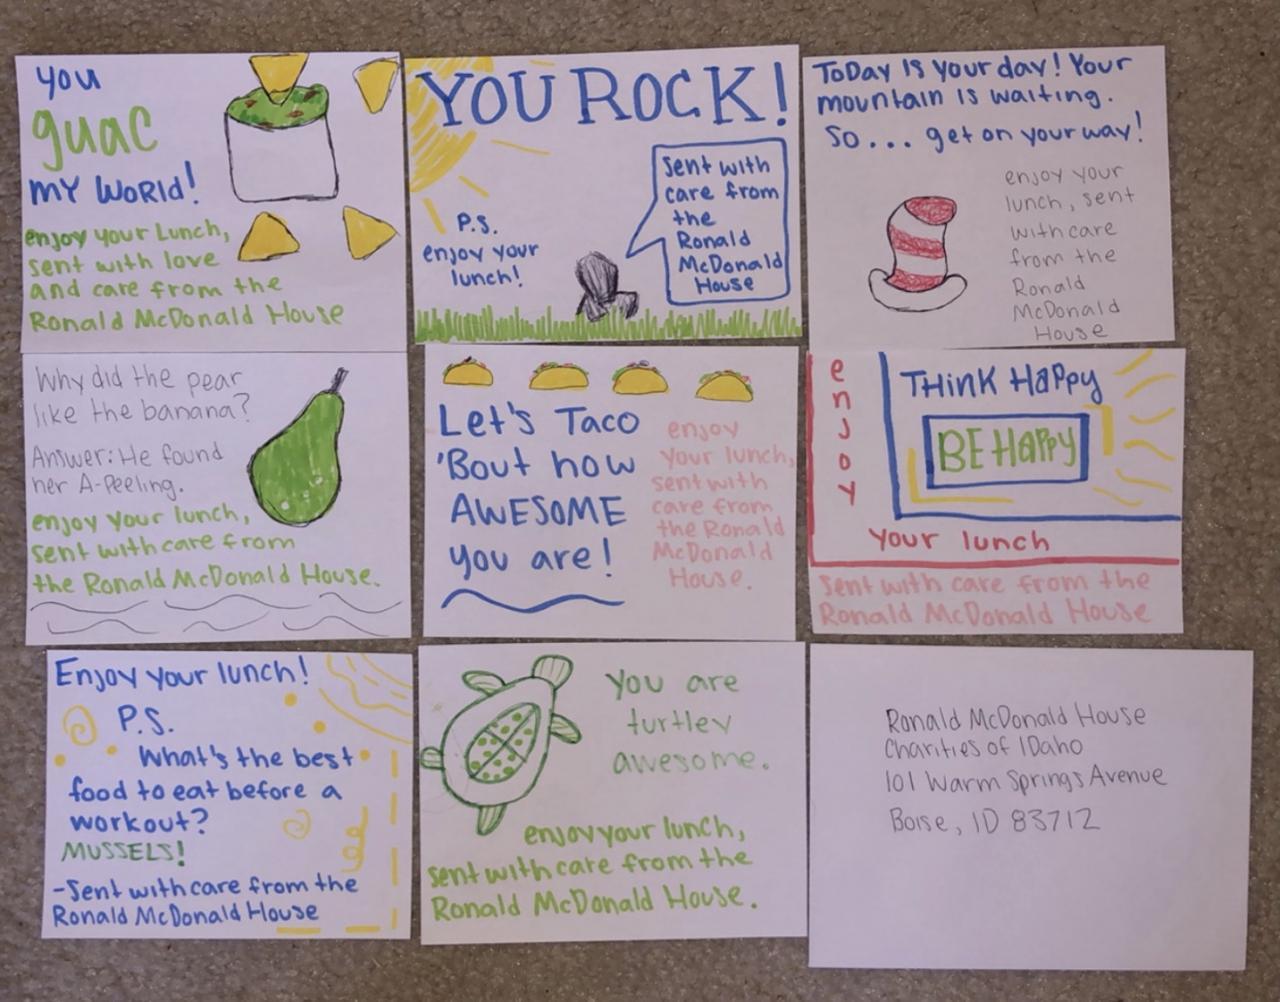 you
guac
MY WORld!
enjoy your Lunch,
sent with love
and care from the
Ronald McDonald House
YOU ROCK!
P.S.
enjoy your
lunch!
sent with
care from
the
Ronald
McDonald
House
ToDay is your day! Your
mountain is waiting.
So... get on your way!
enjoy your
lunch, sent
with care
from the
Ronald
McDonald
House
Why did the pear
like the banana?
Answer: He found
her A-Peeling.
enjoy your lunch,
sent with care from
the Ronald McDonald House.
Let's Taco
'Bout how
AWESOME
you are!
enjoy
your lunch,
sent with
care from
the Ronald
McDonald
House.
enjoy
THink HaPPy
BE HaPPy
your lunch
sent with care from the
Ronald McDonald House
Enjoy your lunch!
P.S.
What's the best
food to eat before a
workout?
MUSSELS!
-Sent with care from the
Ronald McDonald House
you are
turtley
awesome.
enjoy your lunch,
sent with care from the
Ronald McDonald House.
Ronald McDonald House
Charities of IDaho
101 Warm Springs Avenue
Boise, ID 83712